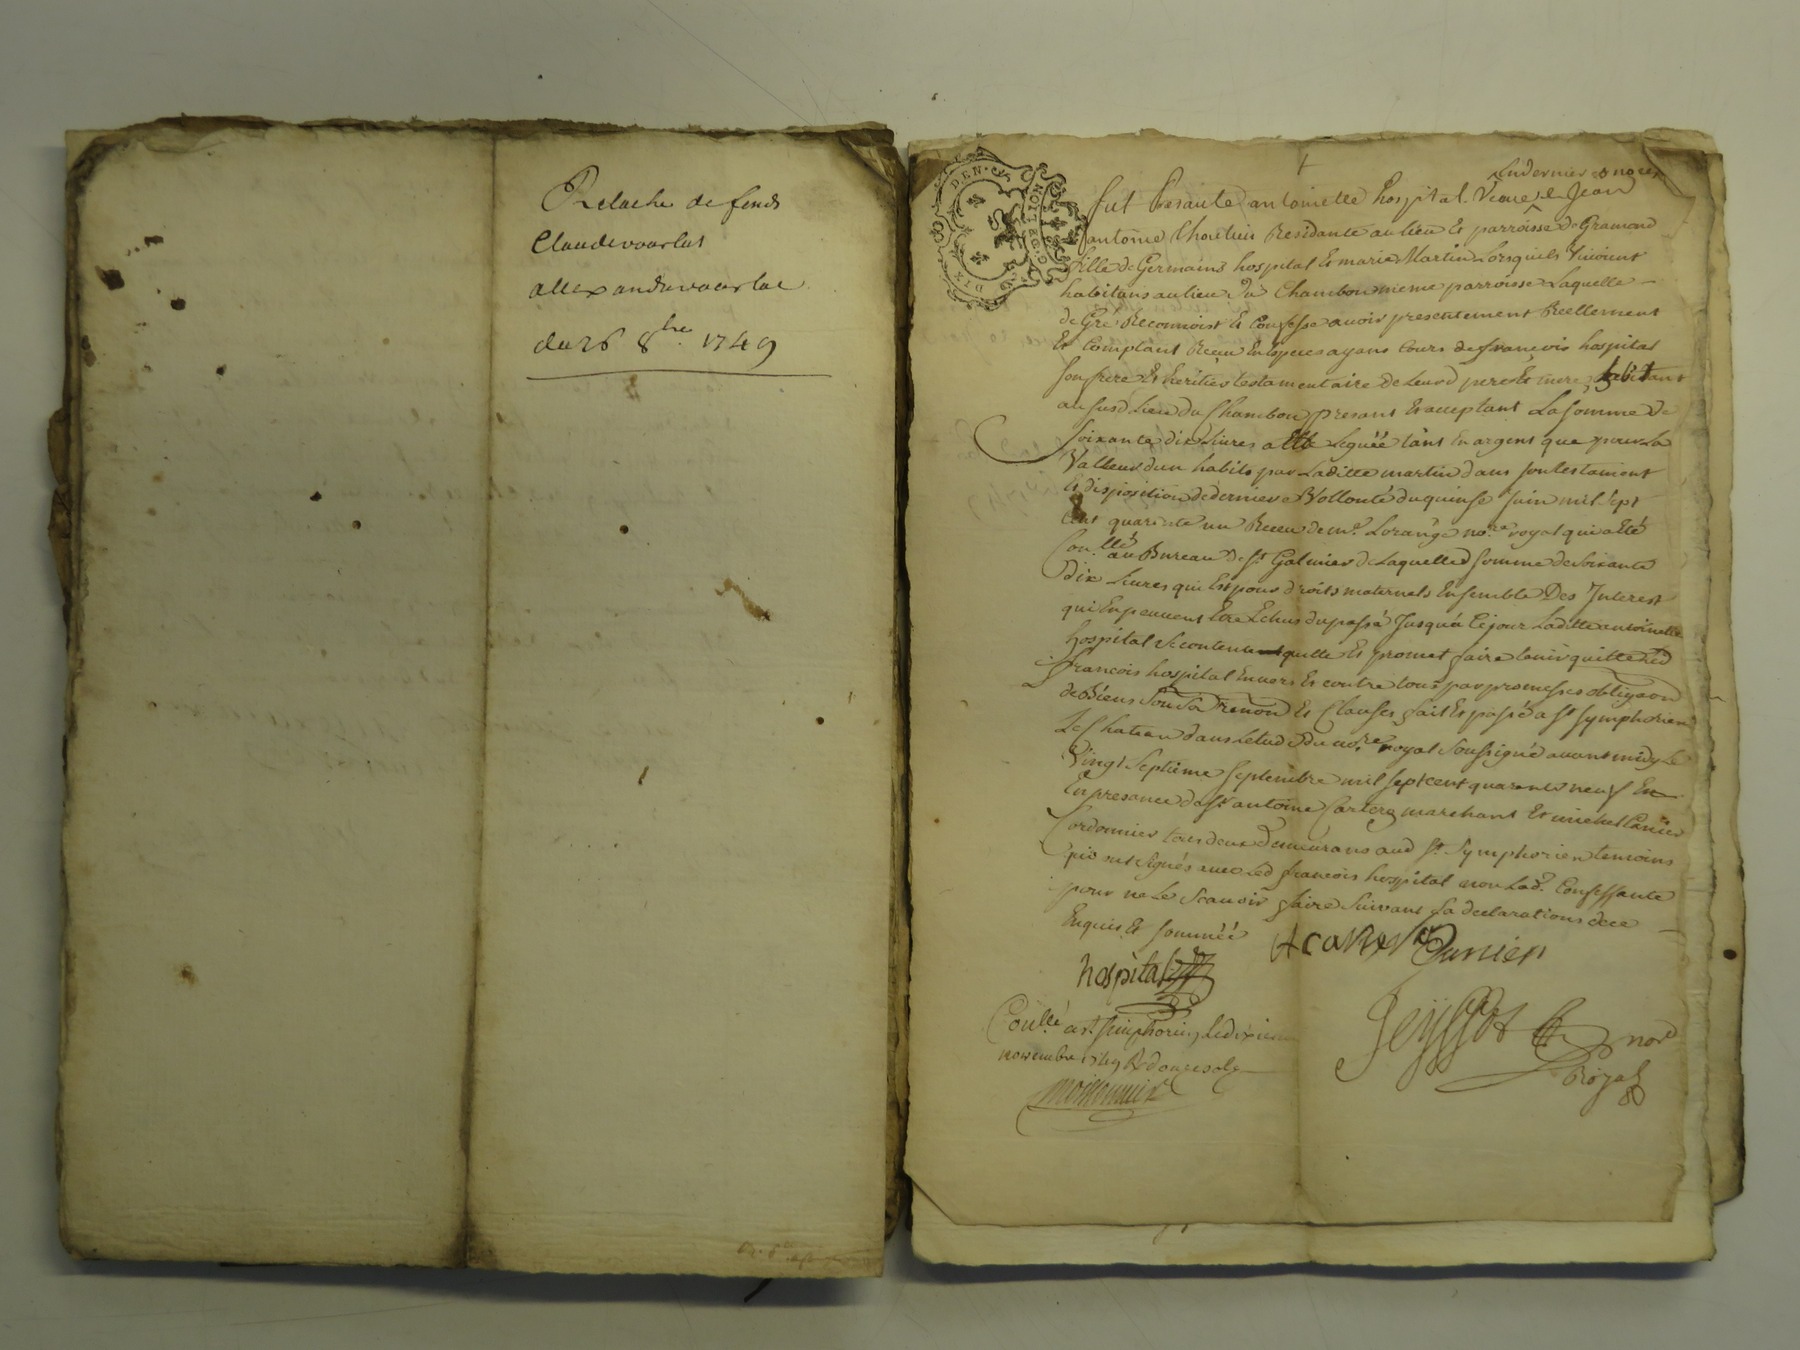 Relache de fonds
Claude
allexandre
du 26 8bre 1749
DEN
GEN. LION
En dernieres noces
fut Presante antoinette hospital veuve de Jean
antoine Residante au lieu Et parroisse de Gramond
fille de Germains hospital Et marie Martin Lorsquiels Vivoient
habitans au lieu du Chambon meme parroisse Laquelle
de Gré Reconnoist Et Confesse avoir presentement Reellement
Et Comptant Receu En Especes ayans Cours de francois hospital
son frere Et heritier testamentaire de Leursd pere Et mere habitant
au susd Lieu du Chambon present Et acceptant La somme de
soixante dix Livres a Elle Leguéé tant En argent que pour La
Valleur dun habits par Laditte martin dans son testament
Et disposition de derniere Vollonté du quinse Juin mil sept
Cent quarente un Receu de me. Lorange nore royal qui a Eté
Conllé au Bureau de St Galmier de Laquelled somme de soixante
dix Livres qui Est pour droits maternels Ensemble Des Interest
qui En peuvent Etre Echus du passé Jusquá Ce jour Laditte antoinette
hospital se contente quitte Et promet faire tenir quitte Led
francois hospital Envers Et contre tous par promesses obligaon
de Biens Renon Et Clauses fait Et passé a St symphorien
Le Chatean dans Letude du nore royal soussigné avant midy Le
Vingt Septieme Septembre mil sept cent quarente neuf En
En presance de Sr antoine marchant Et michel
Cordonnier tous deux Demeurans aud St. Symphorien temoins
qui ont signés avec Led francois hospital non Lade. Confessante
pour ne Le Scavoir faire Suivant sa declarations de ce
Enquis Et somméé
hospital
Conllé a St simphorien, Le dixieme
novembre 1749 R douze sols
nore
Royal